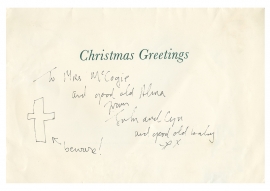 Christmas Greetings
To Mrs McCogie
and good old Alma
from
and Cyn
and good old
xx
beware!